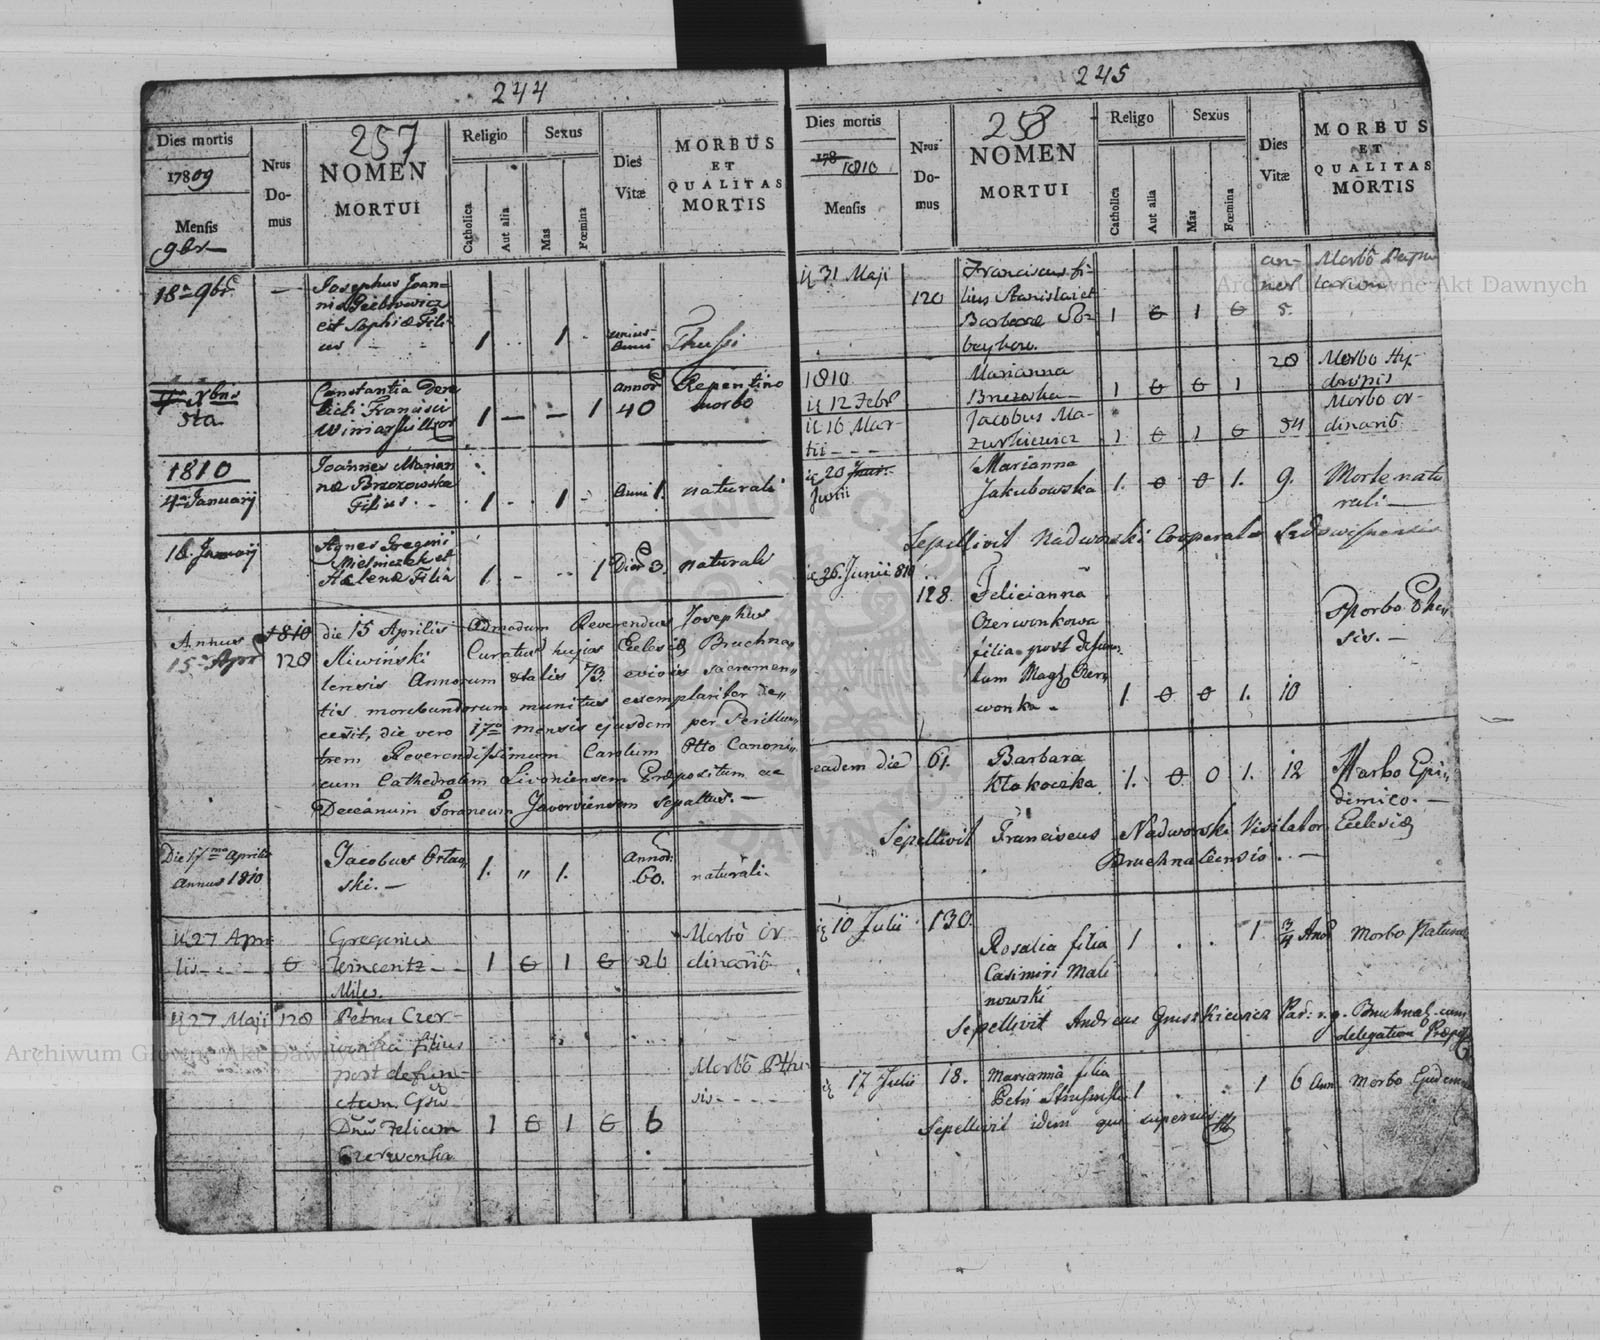 244
Dies mortis
17809
Mensis
9br
Nrus
Do-
mus
257
NOMEN
MORTUI
Religio
Catholica
Aut alia
Sexus
Mas
Fœmina
Dies
Vitæ
MORBUS
ET
QUALITAS
MORTIS
18a 9bris
Josephus Joan=
nis
et Sophiæ Fili
us
1
1
unius
anni
Thussi
Xbris
Constantia
Francisci
1
1
annor
40
Repentino
morbo
1810
4a Januarij
Joannes Marian
næ Brzozowska
Filius
1
1
anni 1.
naturali
16. Januarij
Agnes Gregorii
Mielniczek et
Helenæ Filia
1.
1
Dier 3.
naturali
Annus 1810
15a Apr
128
die 15 Aprilis Admodum Reverendus Josephus
Sliwiński Curatus hujus Eclesiæ Bruchna„
lensis Annorum ætatis 73. sacramen„
tis morebundorum munitus exemplariter de„
cessit, die vero 17a mensis ejusdem per Perillus„
trem Reverendissimum Carolum Otto Canoni„
cum Cathedralem Livoniensem Præpositum ac
Decanum Foraneum Javorviensem sepultus. —
Die 17ma Aprilis
annus 1810
Jacobus Ortaq„
ski. —
1.
„
1.
Annor:
60.
naturali.
27 Apri
lis
0
Gregorius
Wincentz
Miles.
1
0
1
0
26
Morbo or
dinario
27 Maji
128
Petrus Czer-
wonka filius
post defun-
ctum
Felicem
Czerwonka
1
0
1
0
6
Morbo Pthi-
sis
245
Dies mortis
178
1810
Mensis
Nrus
Do-
mus
258
NOMEN
MORTUI
Religo
Catholica
Aut alia
Sexus
Mas
Fœmina
Dies
Vitæ
MORBUS
ET
QUALITAS
MORTIS
31 Maji
120
Franciscus fi-
lius Stanislai et
Barbaræ
1
0
1
0
an-
nor
5.
Morbo
1810
12 Febr
Marianna
Brzozka
1
0
0
1
28
Morbo Hy-
dropis
16 Mar-
tii
Jacobus Ma-
zurkiewicz
1
0
1
0
54
Morbo or-
dinario
20
Junii
Marianna
Jakubowska
1.
0
0
1.
9.
Morte natu
rali —
Sepellivit Nadworski Cooperator
26. Junii 810
128.
Felicianna
Czerwonkowa
filia post defunc„
tum Czer„
wonka
1.
0
0
1.
10
Morbo
sis. —
eadem die
61.
Barbara
Kłakoczka
1.
0
0
1.
12
Morbo Epi„
demico. —
Sepellivit Franciscus Nadworski Visitator Ecclesiæ
Bruchnalensis. —
10 Julii
130.
Rosalia filia
Casimiri Mali
nowski
1
.
.
1
3/4 Anor
Morbo Naturali
Sepellivit Andreas Gruszkiewicz Par: r. g. Bruchnal. cum
delegatione
17 Julii
18.
Marianna filia
Petri
1
1
6 Ann
Morbo Epidemi
Sepellivit idem qui superius
Archiwum Główne Akt Dawnych
Archiwum Główne Akt Dawnych